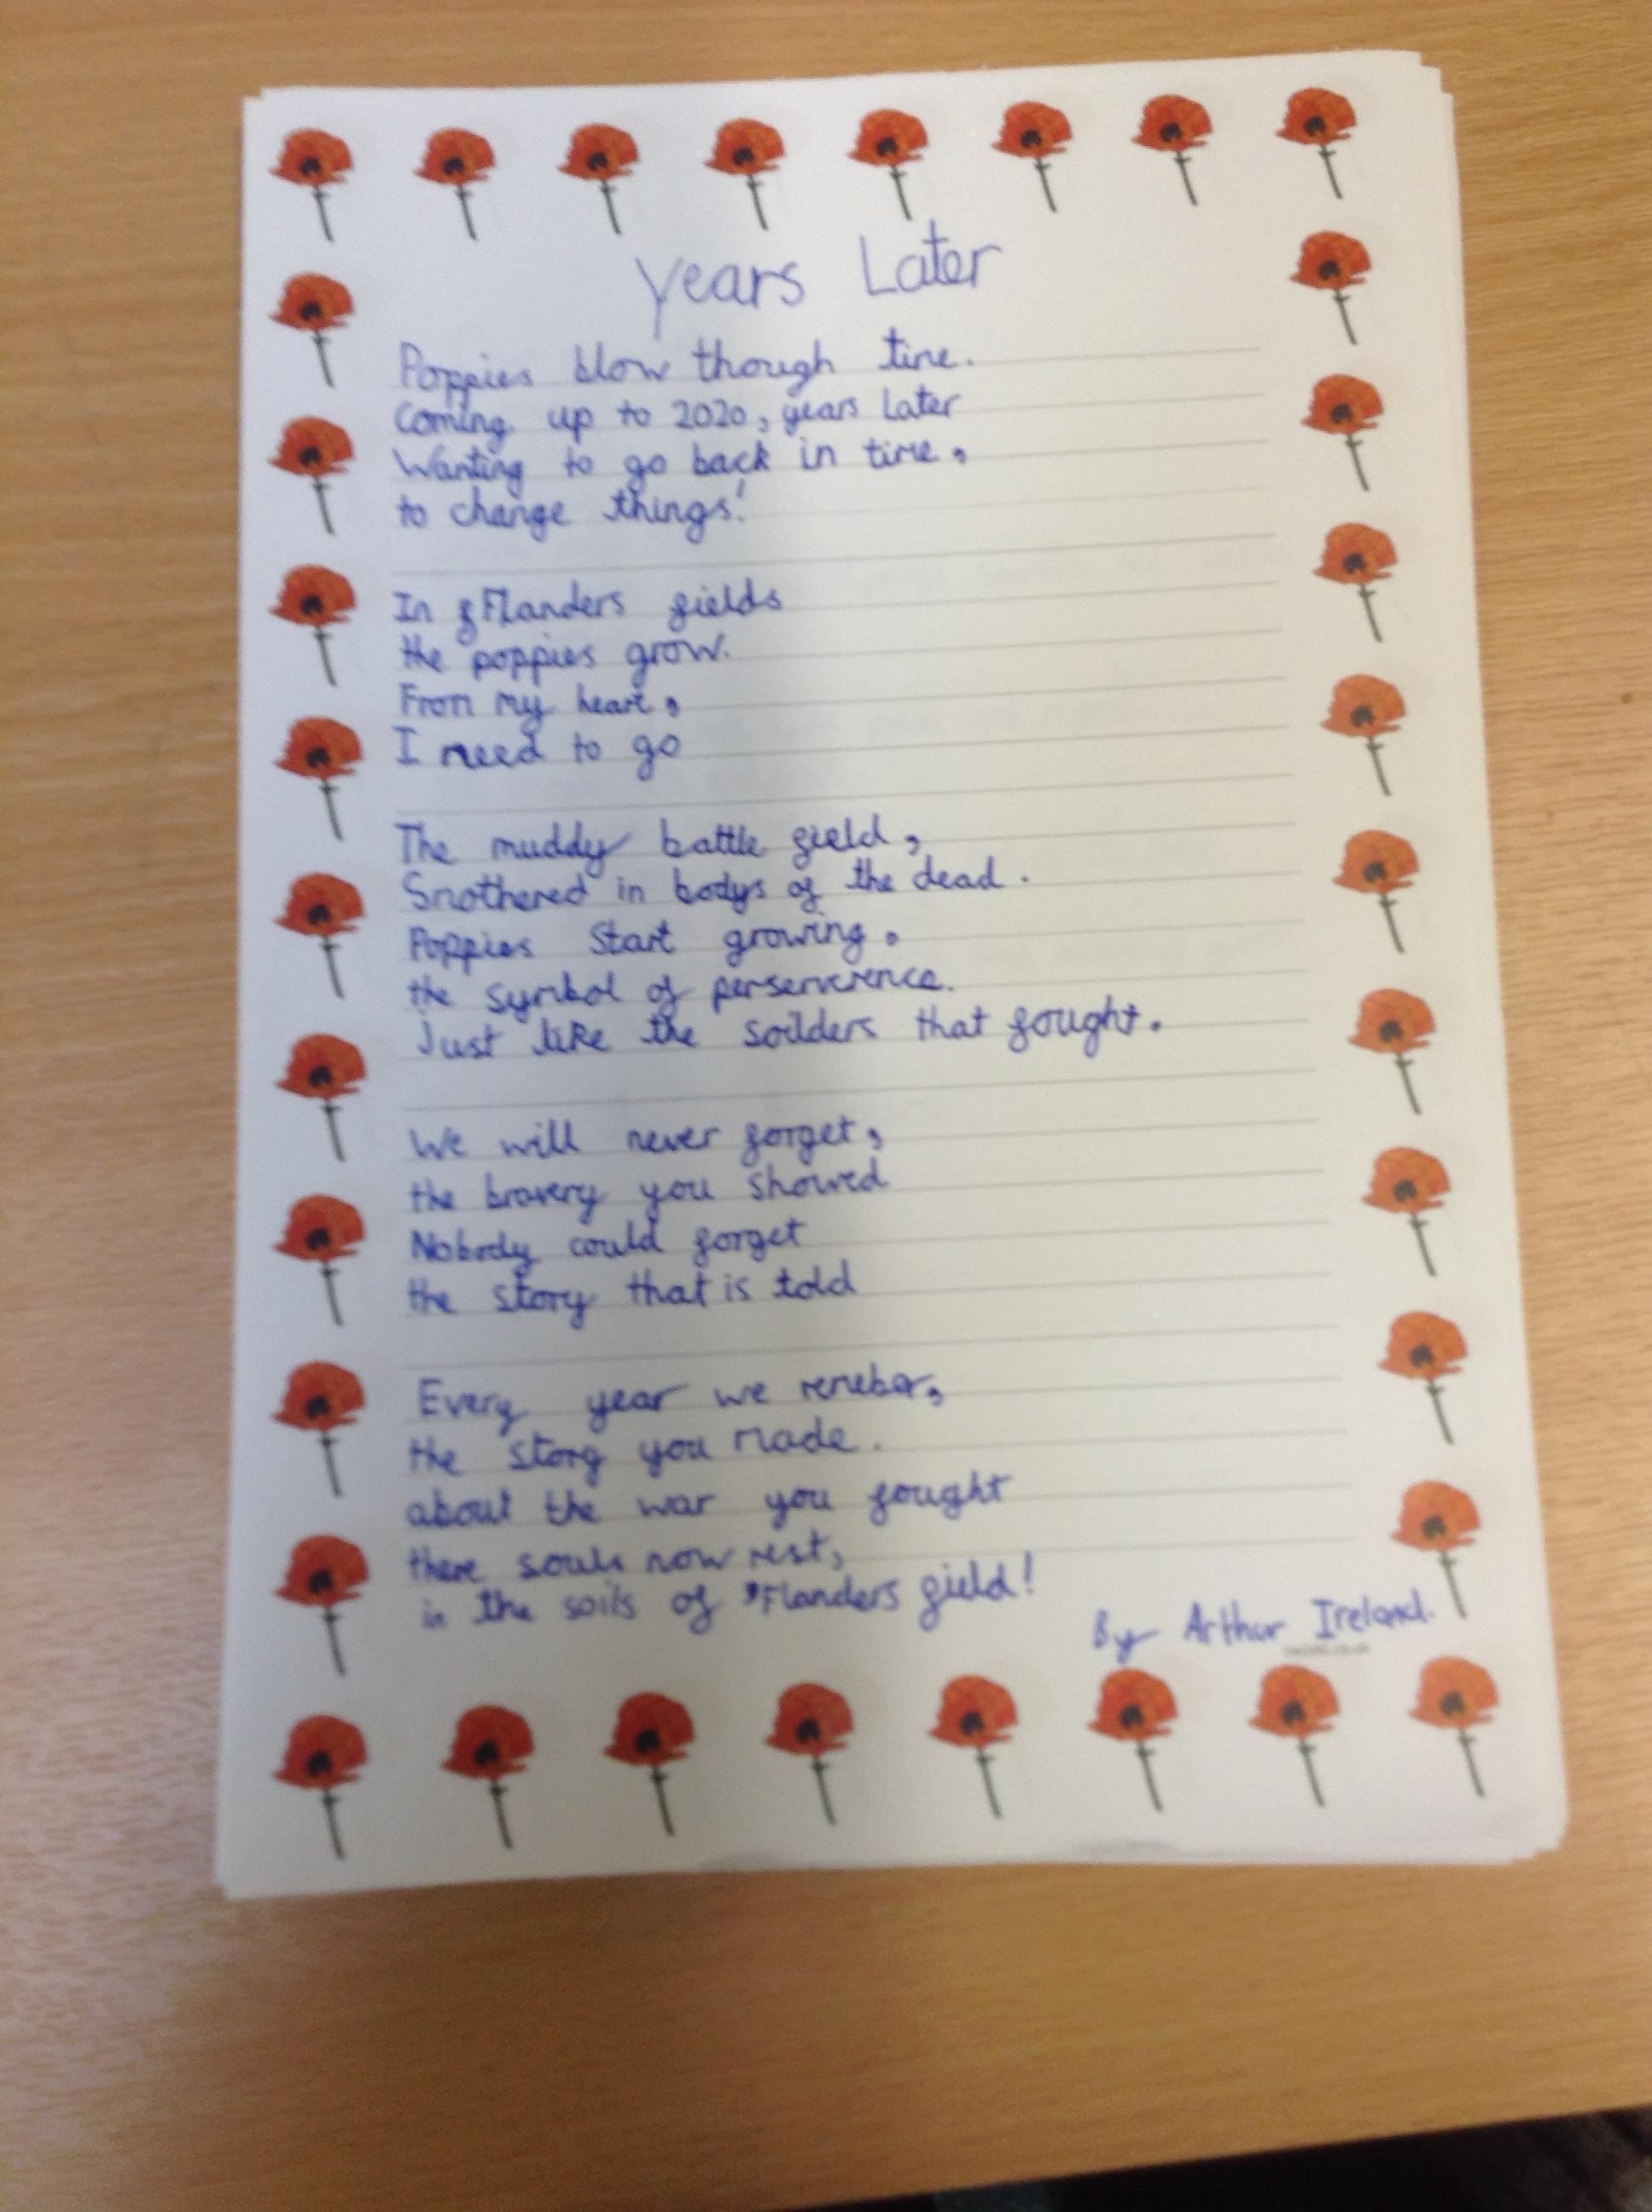 Years Later
Poppies blow though time.
Coming up to 2020, years later
Wanting to go back in time,
to change things!
In Flanders fields
the poppies grow.
From my heart,
I need to go
The muddy battle field,
Smothered in bodys of the dead.
Poppies Start growing.
the symbol of perserverence.
Just like the soilders that fought.
We will never forget,
the bravery you showed
Nobody could forget
the story that is told
Every year we remeber,
the story you made.
about the war you fought
there souls now rest,
in the soils of Flanders field!
By Arthur Ireland.